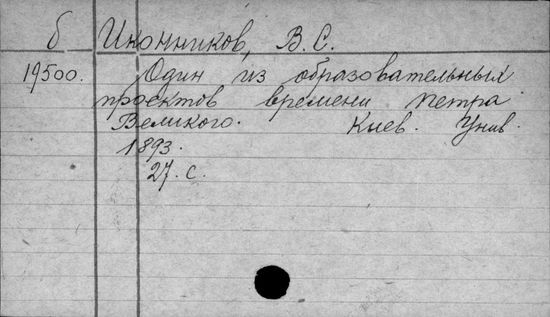 б Иконников, В.С.
19500. Один из образовательных
проектов времени Петра
Великого. Киев. Унив.
1893.
27. с.